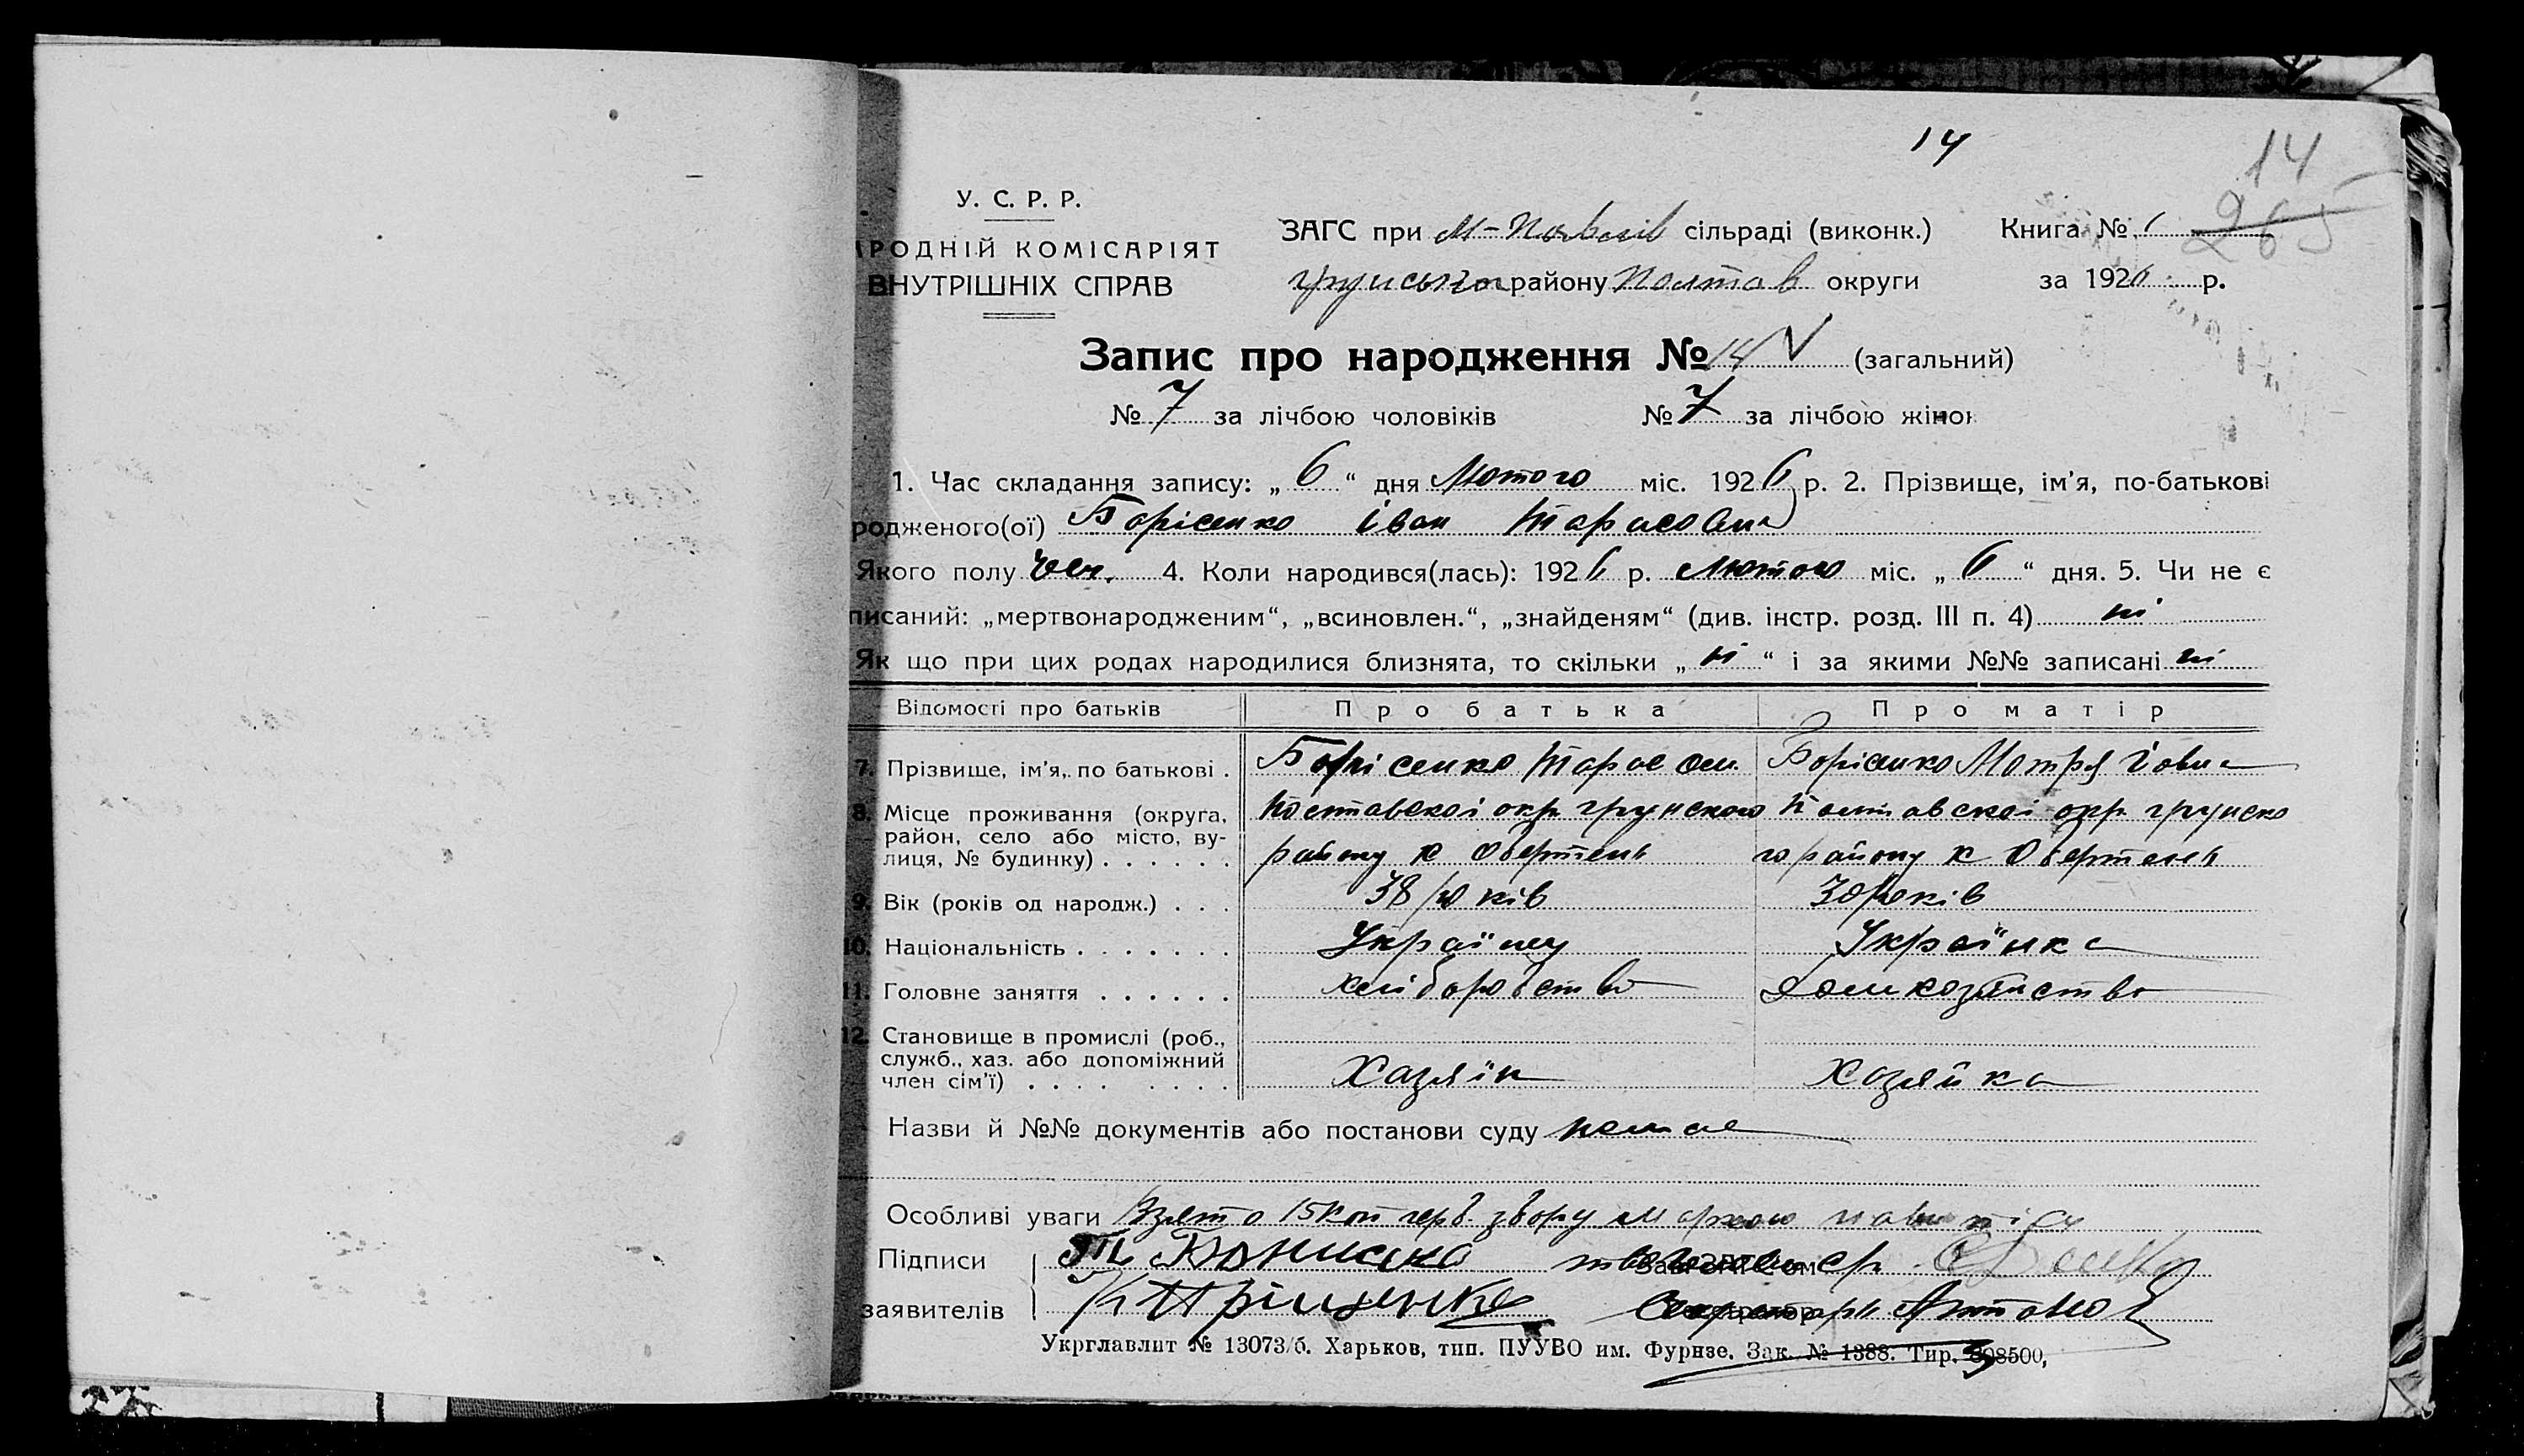 14
14
265
У. С. Р. Р.
РОДНІЙ КОМІСАРІЯТ
ВНУТРІШНІХ СПРАВ
ЗАГС при М- сільраді (виконк.)
району Полтав округи
Книга №
за 1926 р.
Запис про народження № 14 (загальний)
№ 7 за лічбою чоловіків № 7 за лічбою жінок
1. Час складання запису: „ 6 “ дня Лютого міс. 1926 р. 2. Прізвище, ім’я, по-батькові
родженого(ої) Борісенко Іван Тарасович
Якого полу чол. 4. Коли народився(лась): 1926 р. Лютого міс. „ 6 “ дня. 5. Чи не є
писаний: „мертвонародженим“, „всиновлен.“, „знайденям“ (див. інстр. розд. III п. 4) ні
Як що при цих родах народилися близнята, то скільки „ ні “ і за якими №№ записані ні
Відомості про батьків Про батька Про матір
7. Прізвище, ім’я, по батькові . Борісенко Тарас Борісенко Мотря
8. Місце проживання (округа, район, село або місто, вулиця, № будинку) . . . . . .
окр. грунского окр. грунско
району району
9. Вік (років од народж.) . . . 38 років 30 років
10. Національність . . . . . . . Україну Українка
11. Головне заняття . . . . . . хліборобство Домхозайство
12. Становище в промислі (роб., служб., хаз. або допоміжний член сім’ї) . . . . . . . . Хазяїн Хозяйка
Назви й №№ документів або постанови суду немає
Особливі уваги Взято 15 коп
Підписи
заявителів
Секретарь
Укрглавлит № 13073/б. Харьков, тип. ПУУВО им. Фурнзе. Зак. № 1388. Тир.